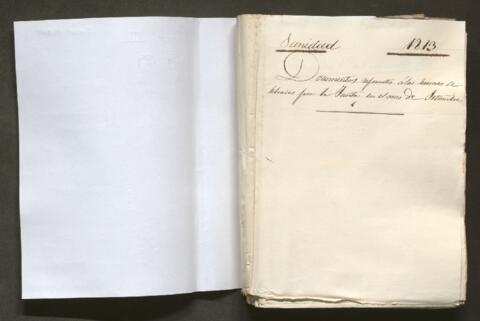 Sanidad 1813
Documentos referentes á las sesiones ce
lebradas por la Junta en el mes de Setiembre